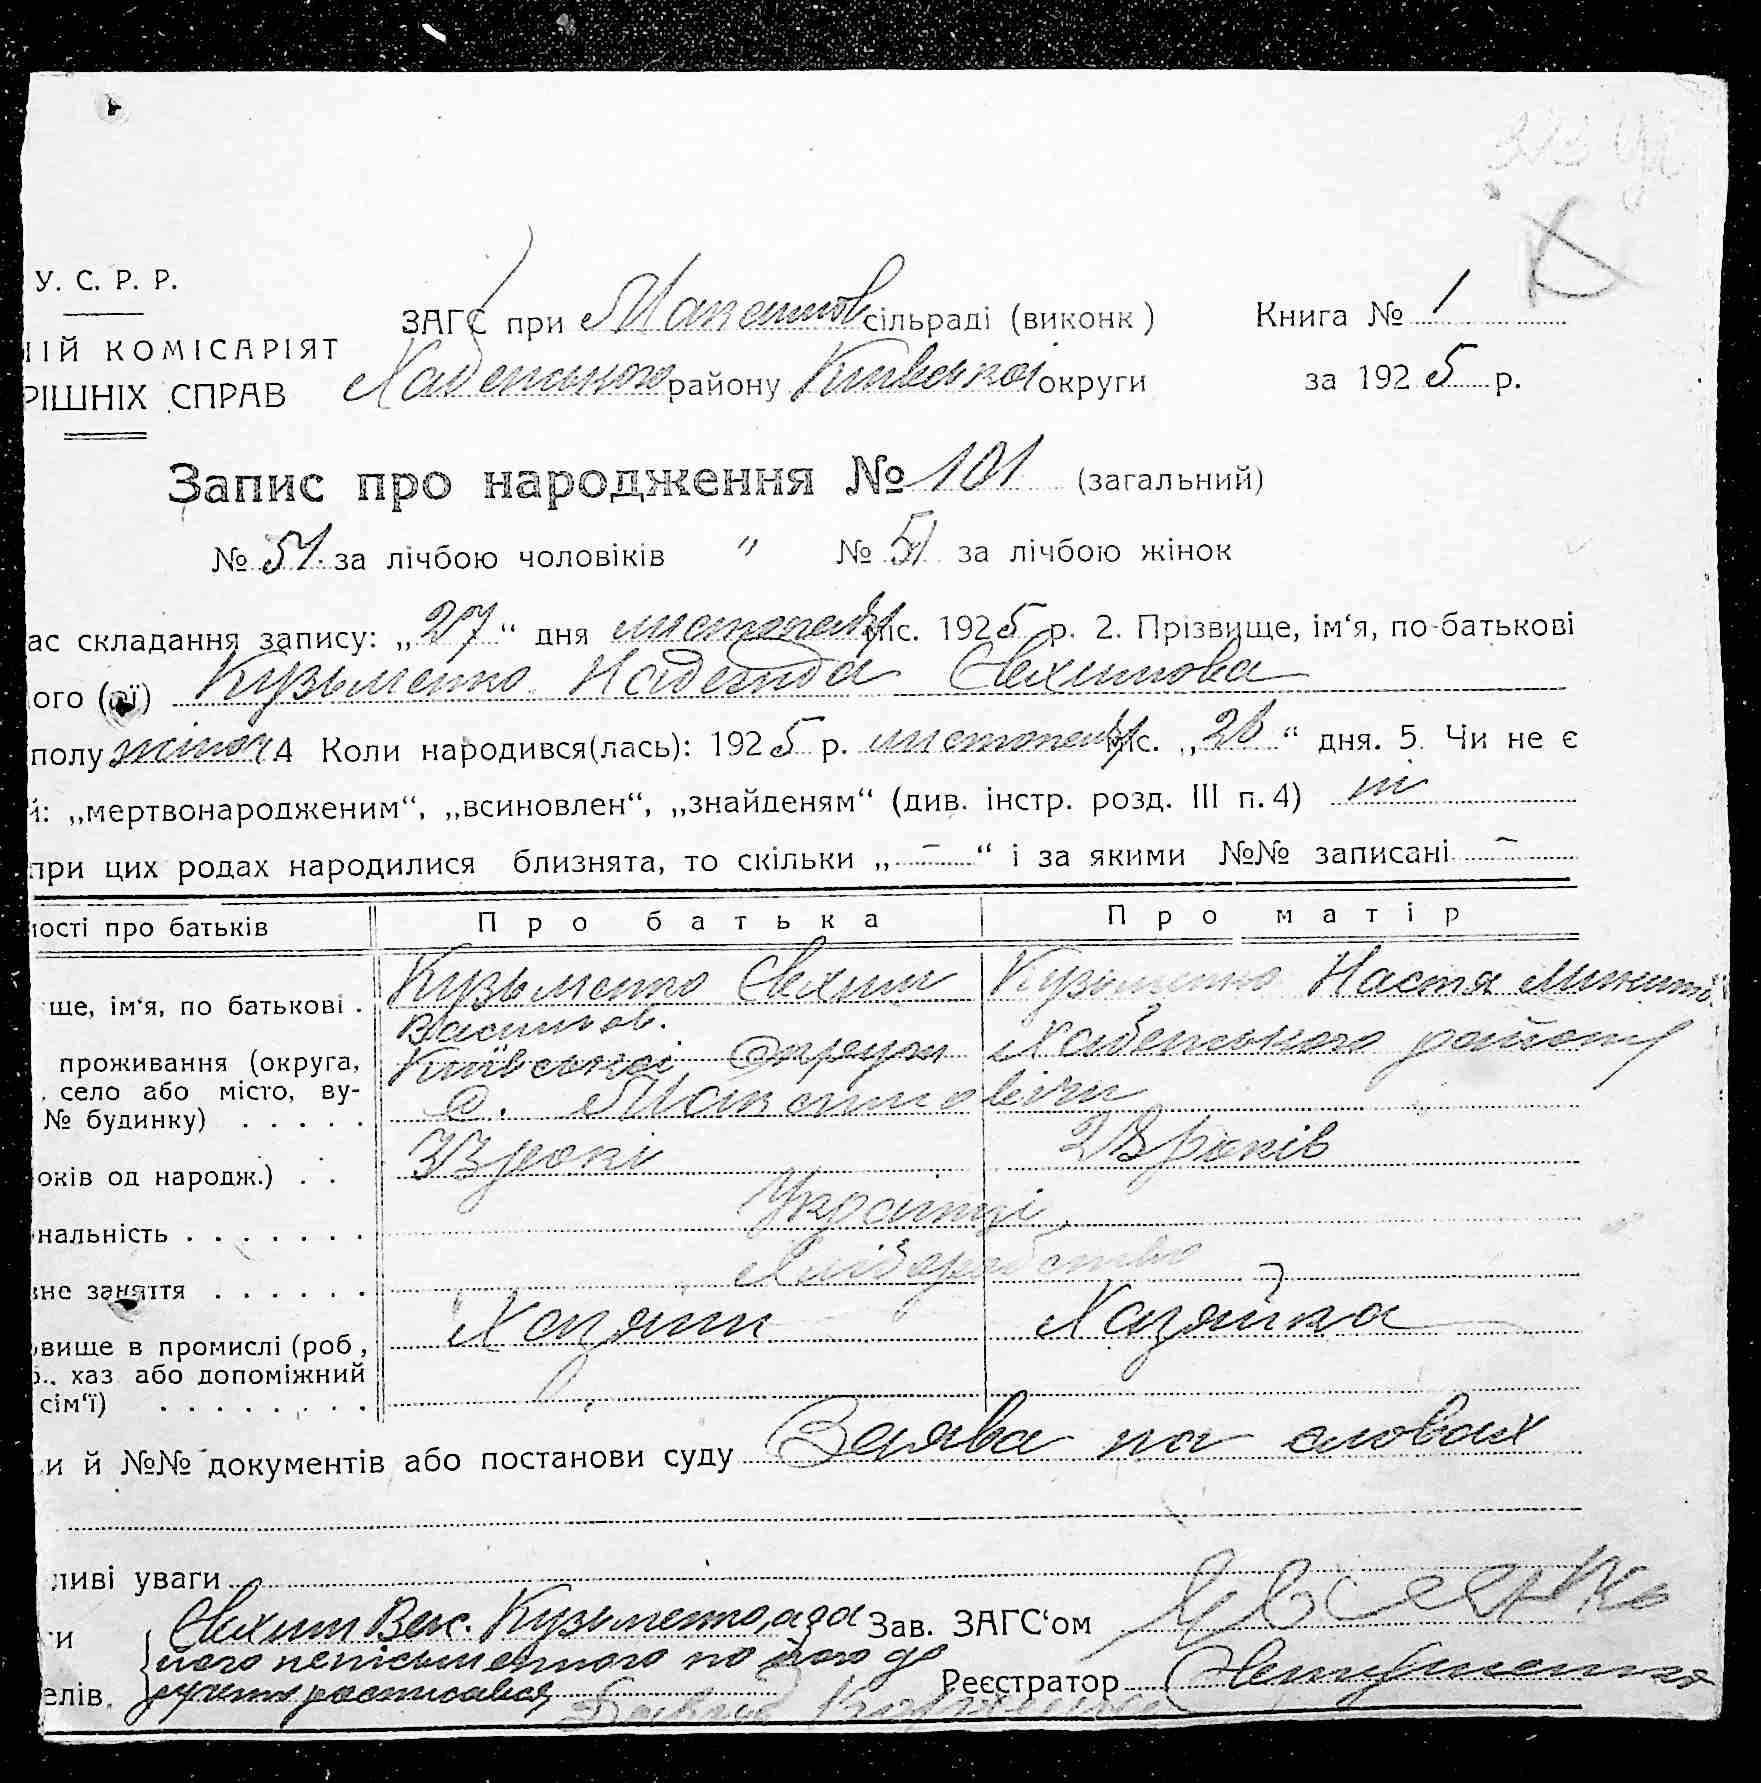 У. С. Р. Р.
ЗАГС при Максимов сільраді (виконк) Книга № 1
НІЙ КОМІСАРІЯТ
Хабенського району Київської округи за 1925 р.
РІШНІХ СПРАВ
Запис про народження № 101 (загальний)
№ 51. за лічбою чоловіків " № 51 за лічбою жінок
ас складання запису: „27“ дня листопада міс. 1925 р. 2. Прізвище, ім‘я, по-батькові
ого (ої) Кузьменко Надежда Євхимова
полу жіноч 4 Коли народився(лась): 1925 р. листопада міс. „26“ дня. 5. Чи не є
й: „мертвонародженим“, „всиновлен“, „знайденям“ (див. інстр. розд. III п. 4) ні
при цих родах народилися близнята, то скільки „ – “ і за якими №№ записані –
ності про батьків Про батька Про матір
ще, ім'я, по батькові . Кузьменко Євхим Кузьменко Настя Микит.
Васильов.
проживання (округа, Київської Округи Хабенського району
село або місто, ву- с. Максимовичи
№ будинку) . . . . .
оків од народж.) . . 33 роки 28 років
нальність . . . . . . . Українці
вне заняття . . . . . . Хліборобство
вище в промислі (роб, Хазяин Хазяйка
., хаз або допоміжний
сім‘ї) . . . . . . . .
и й №№ документів або постанови суду Заява на словах
ливі уваги
ги Євхим Вас. Кузьменко, а за Зав. ЗАГС‘ом
його неписьменного по його до
елів. ручению росписався Реєстратор